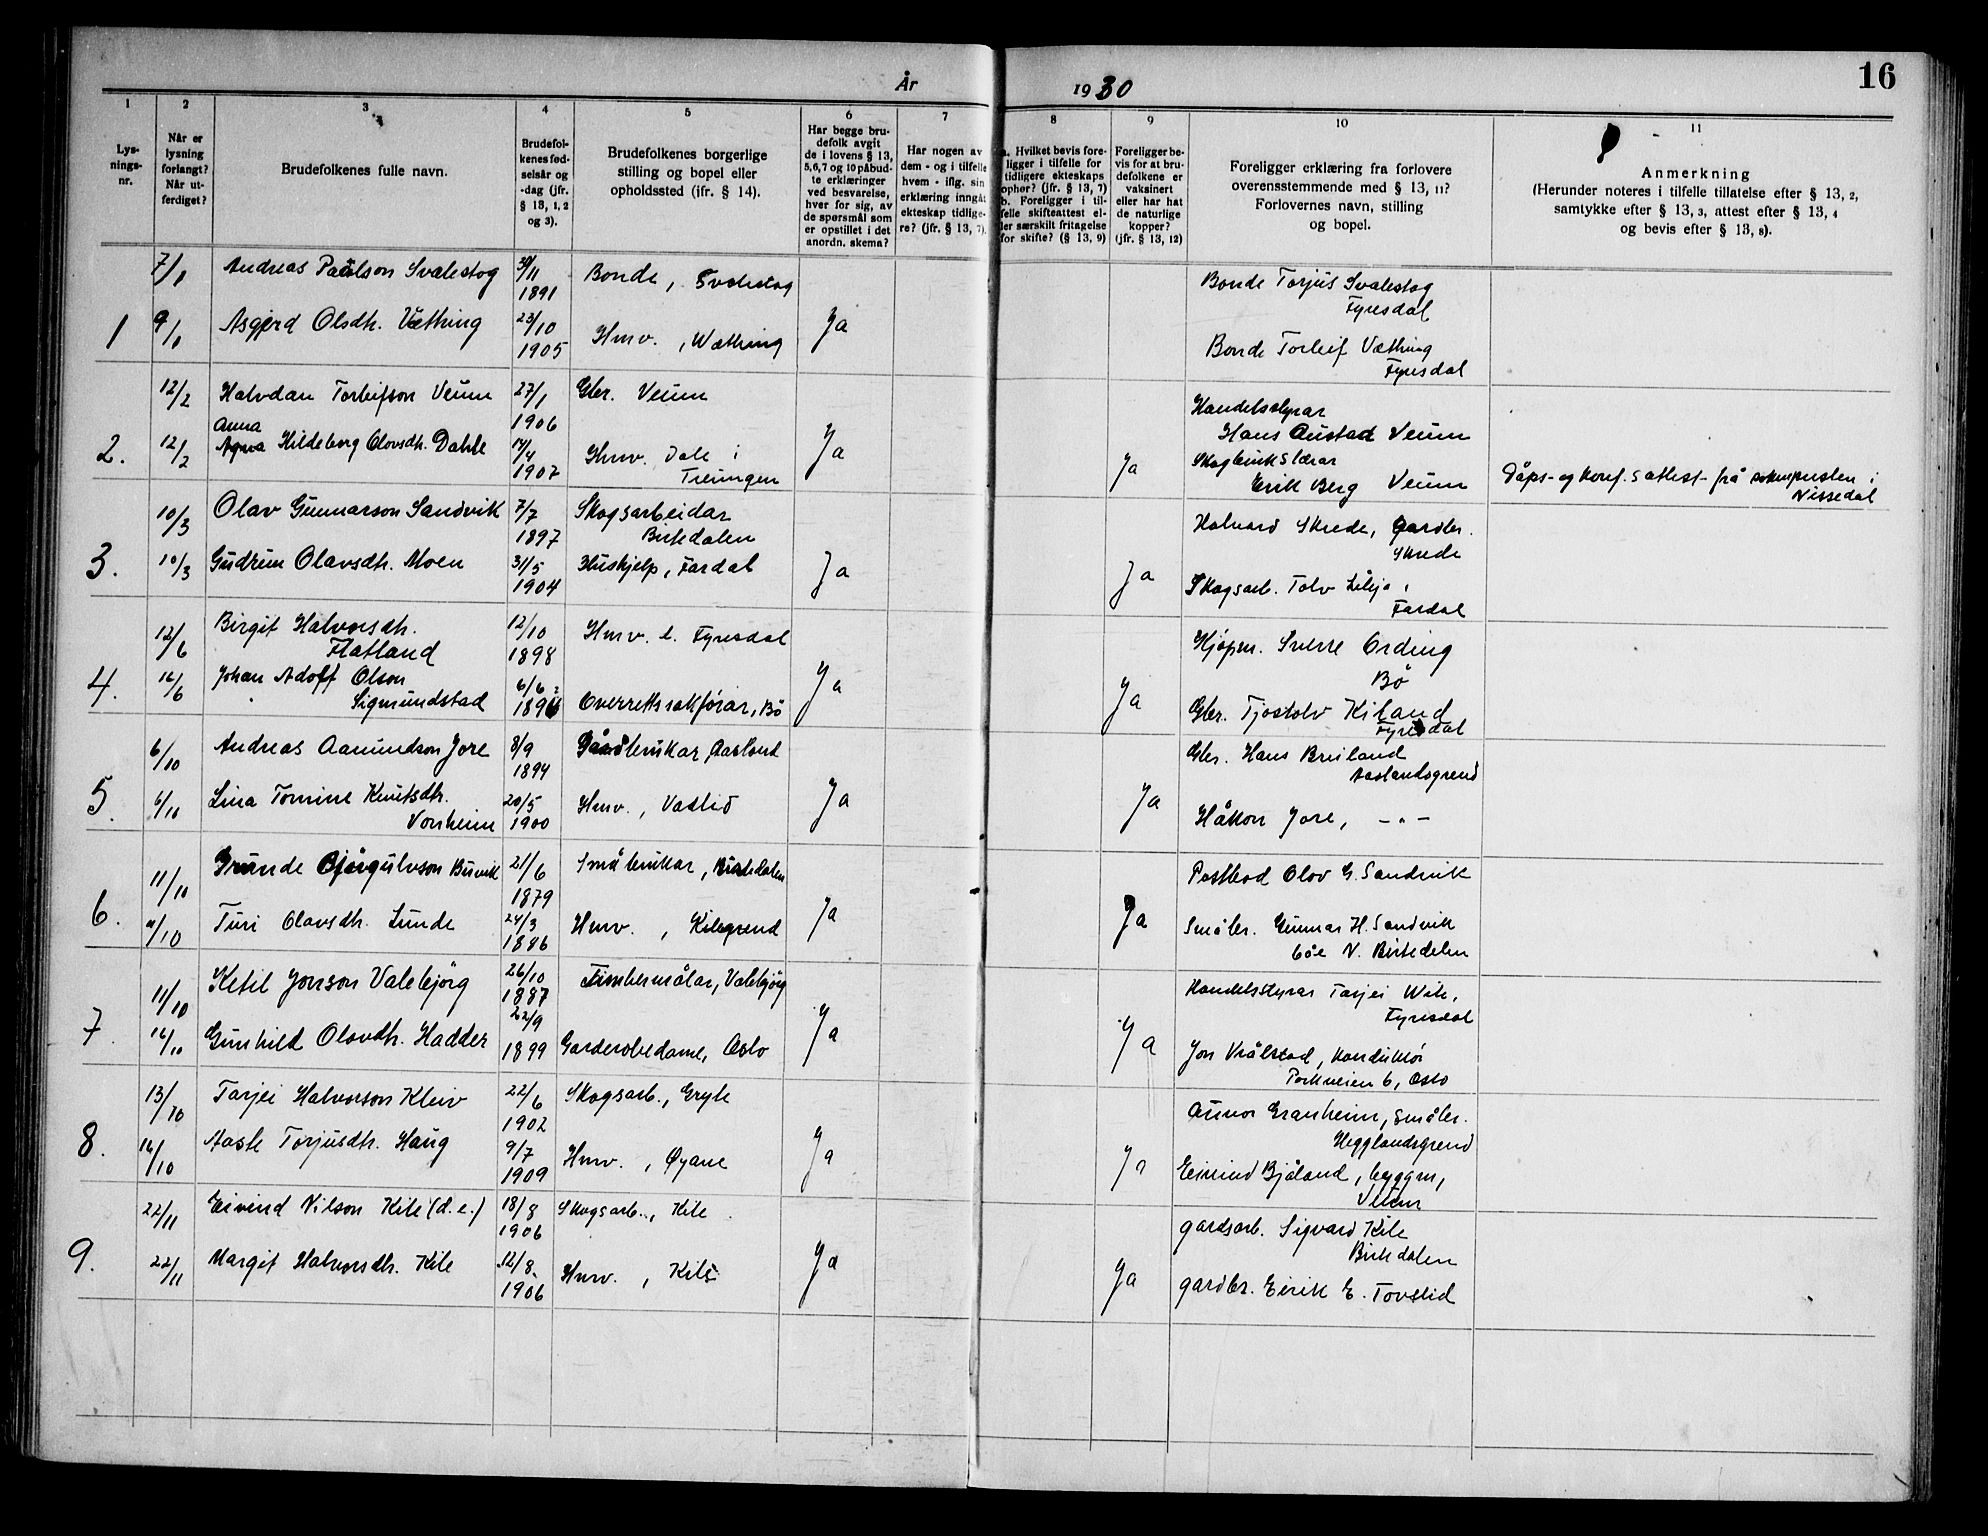 År 1930
16
1
2
3
4
5
6
7
8
9
10
11
Lys-
nings-
nr.
Når er
lysning
forlangt?
Når ut-
ferdiget?
Brudefolkenes fulle navn.
Brudefol-
kenes fød-
selsår og
-dag (jfr.
§ 13, 1, 2
og 3).
Brudefolkenes borgerlige
stilling og bopel eller
opholdssted (ifr. § 14).
Har begge bru-
defolk avgit
de i lovens § 13,
5,6,7 og 10 påbud-
te erklæringer
ved besvarelse,
hver for sig, av
de spørsmål som
er opstillet i det
anordn. skema?
Har nogen av
dem - og i tilfelle
hvem - iflg. sin
erklæring inngåt
ekteskap tidlige-
re? (jfr. § 13, 7).
a. Hvilket bevis fore-
ligger i tilfelle for
tidligere ekteskaps
ophør? (jfr. § 13, 7)
b. Foreligger i til-
felle skifteattest el-
ler særskilt fritagelse
for skifte? (§ 13, 9)
Foreligger be-
vis for at bru-
defolkene er
vaksinert
eller har hat
de naturlige
kopper?
(jfr. § 13, 12)
Foreligger erklæring fra forlovere
overensstemmende med § 13, 11?
Forlovernes navn, stilling
og bopel.
Anmerkning
(Herunder noteres i tilfelle tillatelse efter § 13, 2,
samtykke efter § 13, 3, attest efter § 13, 4
og bevis efter § 13, 8).
7/1 Andreas Paulson Svalestog 30/11 1891 Bonde, Svalestog
Bonde Torjus Svalestog
Fyresdal
1 9/1 Asgjerd Olsdtr. Væthing 23/10 1905 Hmv., Wæthing Ja
Bonde Torleif Væthing
Fyresdal
12/2 Halvdan Torleifson Veum 27/1 1906 Gbr. Veum
Handelsstyrar
Hans Austad Veum
Anna
2. 12/2 Hildeborg Olovsdtr. Dahle 14/4 1907 Hmv. Dale i
Treungen Ja Ja
Skogbrukslærar
Erik Berg Veum
Dåps- og konf.sattest frå soknepresten i
Nissedal
10/3 Olav Gunnarson Sandvik 7/7 1897 Skogsarbeidar
Birtedalen
Halvard Skrede, gardbr.
Skrede
3. 10/3 Gudrun Olavsdtr. Moen 31/5 1904 Hushjelp, Fardal Ja Ja
Skogsarb. Tolv Lileja,
Fardal
12/6 Birgit Halvorsdtr.
Flatland 12/10 1898 Hmv. e. Fyresdal
Hjøpm. Sverre Ording
Bö
4. 16/6 Johan Adolf Olson
Sigmundstad 6/6 Overrettssakførar, Bö Ja Ja
Gbr. Tjostolv Kiland
Fyresdal
6/10 Andreas Aanundson Jore 8/9 1894 Gårdbrukar Aasland
Gbr. Hans Breiland
Aaslandsgrend
5. 6/10 Lina Tomine Knutsdtr.
Vonheim 20/5 1900 Hmv., Vaslid Ja Ja
Håkon Jore, -"-
11/10 Grunde Bjørgulvson Buvik 21/6 1879 Småbrukar, Birtedalen
Postbod Olov G. Sandvik
6. 11/10 Turi Olavsdtr. Lunde 24/3 1886 Hmv., Kilegrend Ja Ja
Småbr. Gunnar H. Sandvik
N. Birtedalen
11/10 Ketil Jonson Valebjörg 26/10 1887 Timbermålar, Valebjörg
Handelsstyrar Tarjei Wik,
Fyresdal
7. 16/10 Gunhild Olovdtr. Hadder 22/9 1899 Garderobedame, Oslo Ja Ja
Jon Vrålstad, konduktör
Parkveien 6, Oslo
13/10 Tarjei Halvorson Kleiv 22/6 1902 Skogsarb., Gryte
Aunor Granheim, småbr.
Hegglandsgrend
8. 16/10 Aaste Torjusdtr. Haug 9/7 1909 Hmv., Øyane Ja Ja
Eivind Bjåland, byggm,
Veum
22/11 Eivind Nilson Kile (d. e.) 18/8 1906 Skogsarb., Kile
gardsarb. Sigvard Kile
Birtedalen
9. 22/11 Margit Halvorsdtr. Kile 12/8 1906 Hmv., Kile Ja Ja
gardbr. Eirik E. Tovslid